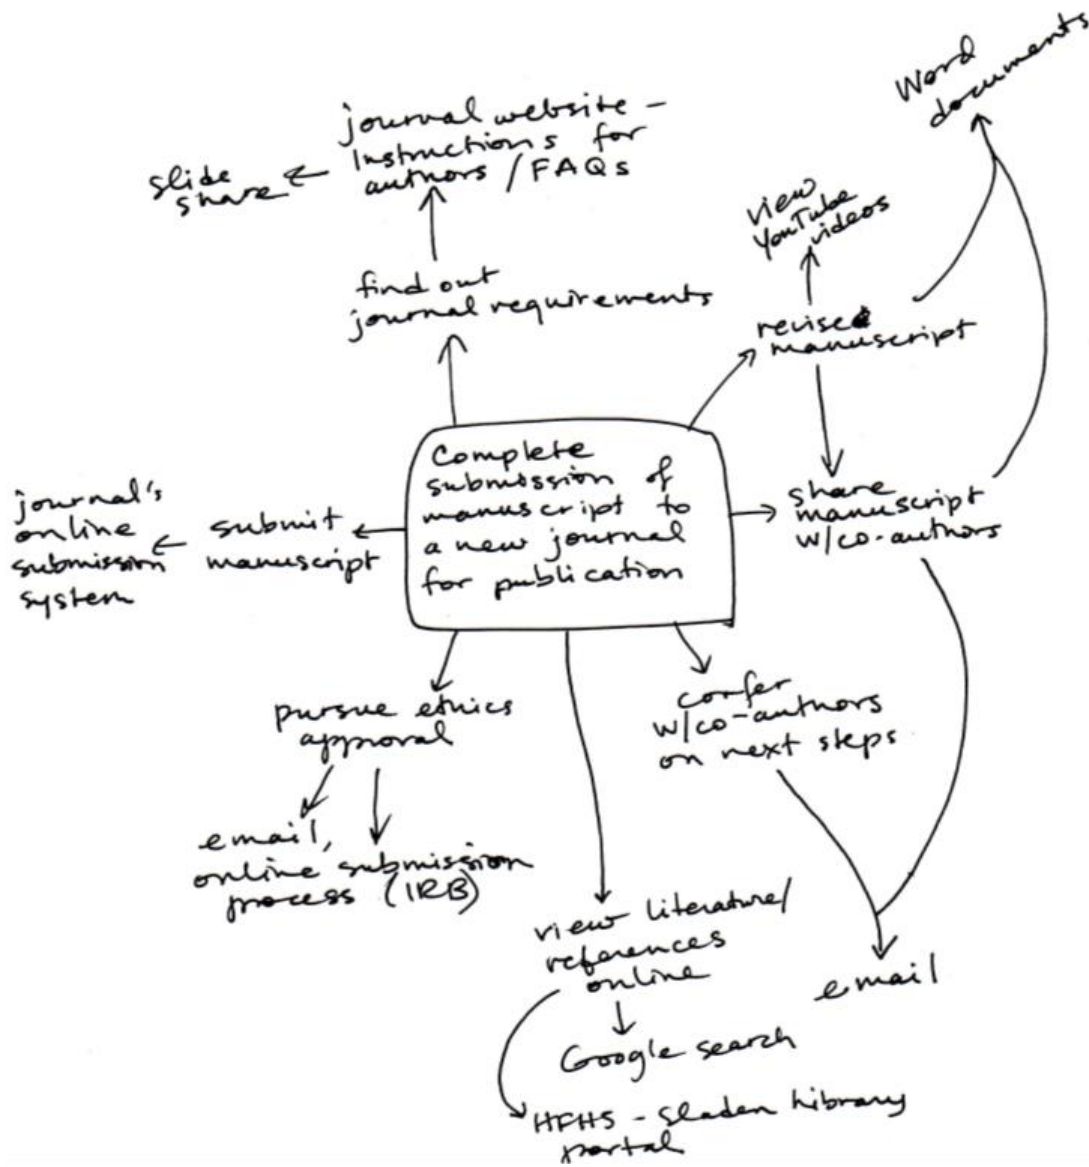 Word
documents
journal website -
Instructions for
authors / FAQs
slide
share
view
YouTube
videos
find out
journal requirements
revise
manuscript
Complete
submission of
manuscript to
a new journal
for publication
share
manuscript
w/co-authors
journal's
online
submission
system
submit
manuscript
pursue ethics
approval
confer
w/co-authors
on next steps
email,
online submission
process (IRB)
view literature/
references
online
email
Google search
HFHS - Sladen Library
portal